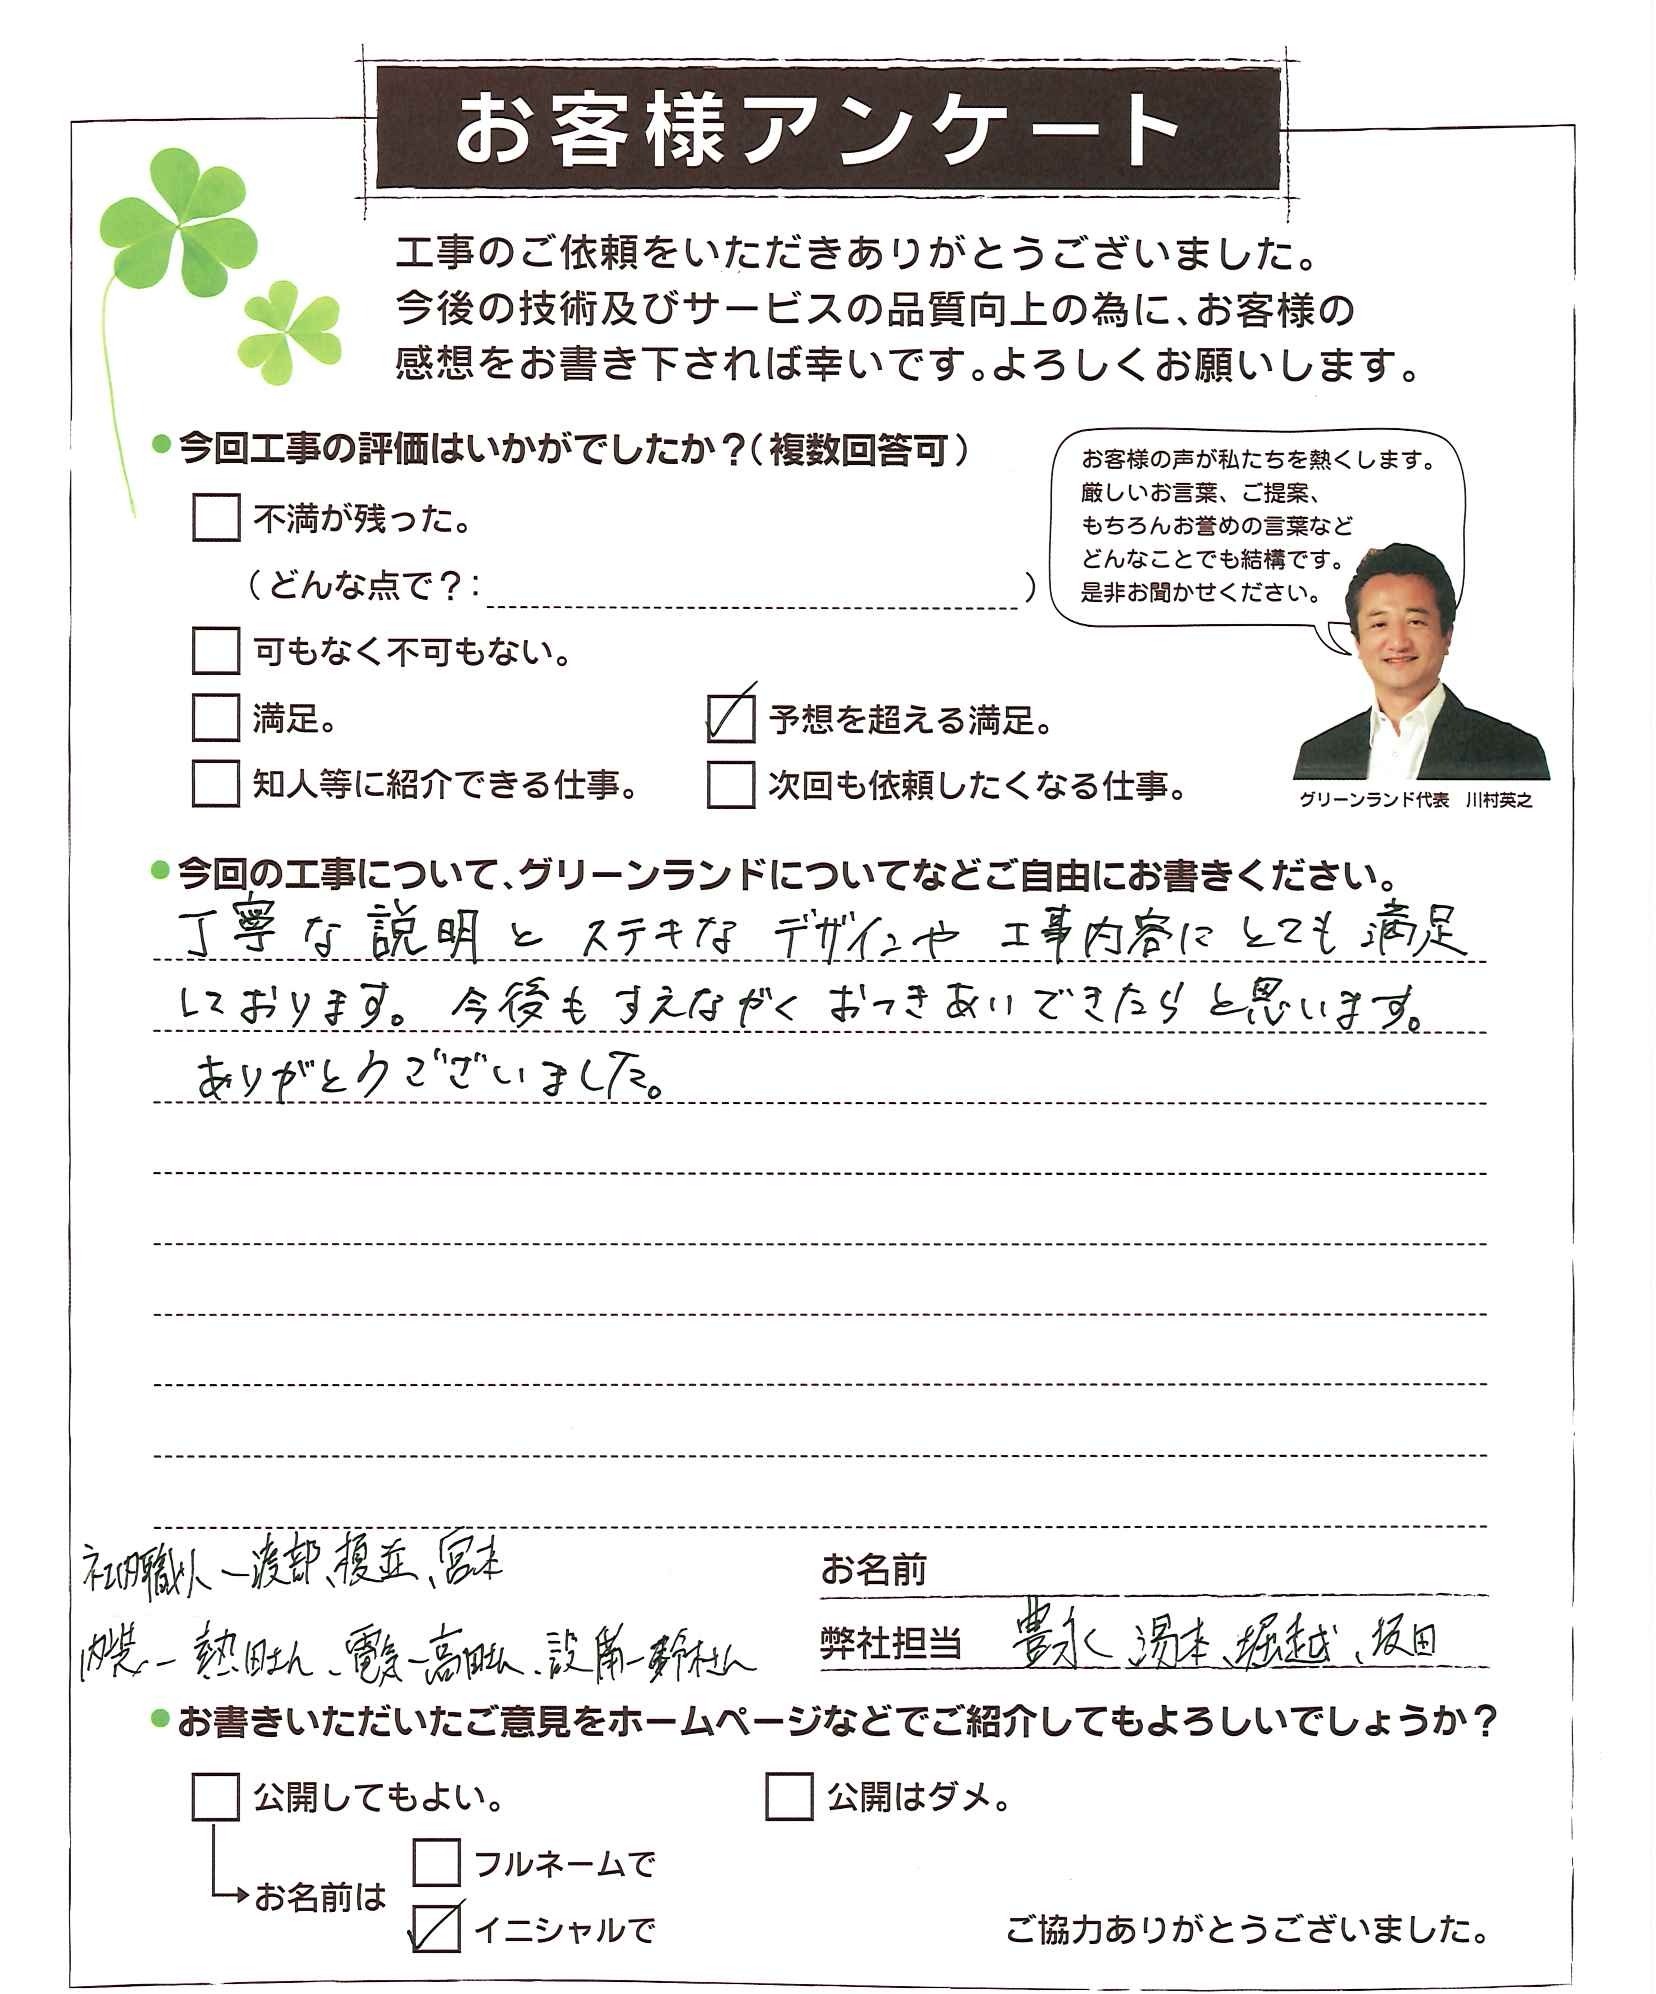 お客様アンケート
工事のご依頼をいただきありがとうございました。
今後の技術及びサービスの品質向上の為に、お客様の
感想をお書き下されば幸いです。よろしくお願いします。
今回工事の評価はいかがでしたか？（複数回答可）
不満が残った。
（どんな点で？：　）
可もなく不可もない。
満足。
予想を超える満足。
知人等に紹介できる仕事。
次回も依頼したくなる仕事。
お客様の声が私たちを熱くします。
厳しいお言葉、ご提案、
もちろんお誉めの言葉など
どんなことでも結構です。
是非お聞かせください。
グリーンランド代表　川村英之
今回の工事について、グリーンランドについてなどご自由にお書きください。
丁寧な説明と ステキな デザインや 工事内容に とても 満足
しております。 今後も すえながく おつきあいできたらと思います。
ありがとうございました。
社内職人ー渡部、榎並、宮本
内装ー熱田さん、電気ー高田さん、設備ー鈴木さん
お名前
弊社担当 豊永、湯本、堀越、坂田
お書きいただいたご意見をホームページなどでご紹介してもよろしいでしょうか？
公開してもよい。
公開はダメ。
お名前は
フルネームで
イニシャルで
ご協力ありがとうございました。